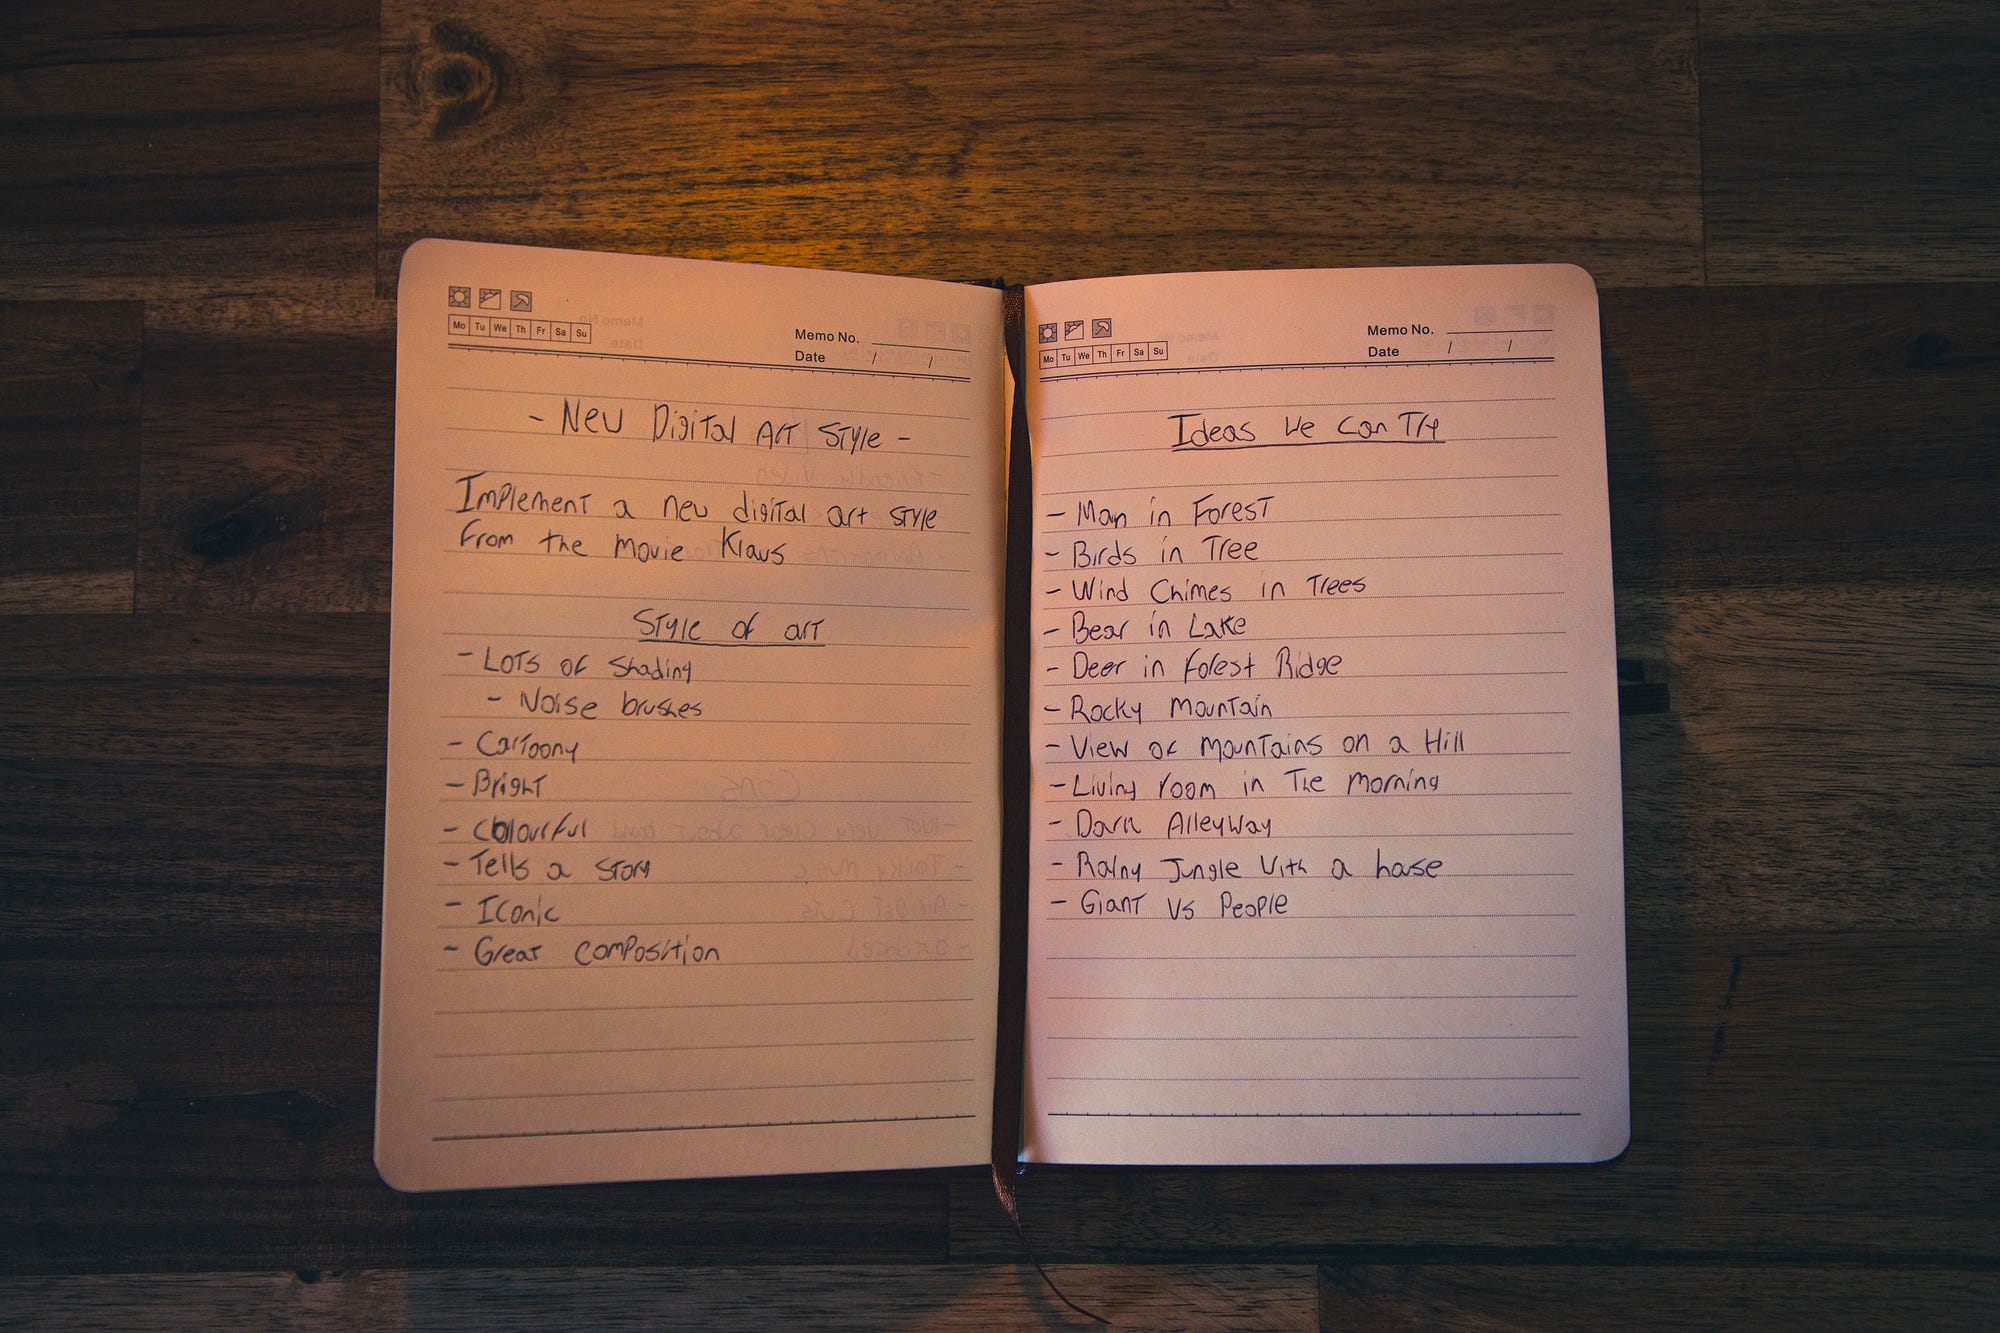 Mo Tu We Th Fr Sa Su
Memo No.
Date / /
- New Digital Art Style -
Implement a new digital art style
from the movie Klaus
Style of art
- Lots of shading
- Noise brushes
- Cartoony
- Bright
- Colourful
- Tells a story
- Iconic
- Great composition
Mo Tu We Th Fr Sa Su
Memo No.
Date / /
Ideas We Can Try
- Man in Forest
- Birds in Tree
- Wind Chimes in Trees
- Bear in Lake
- Deer in forest Ridge
- Rocky Mountain
- View of mountains on a Hill
- Living room in The morning
- Dark Alleyway
- Rainy Jungle with a house
- Giant vs People